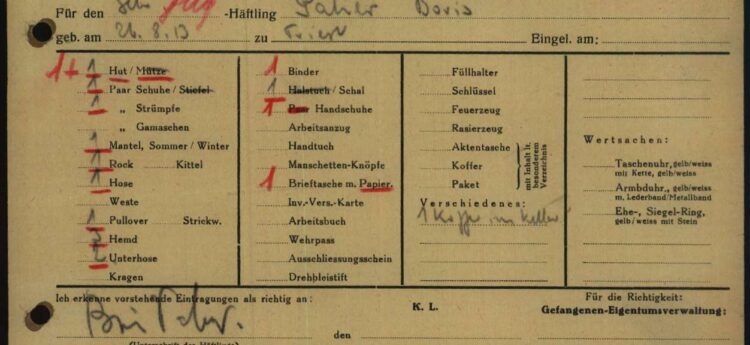 Für den Sch Jug -Häftling Pahor Boris
geb. am 26.8.13 zu Triest Eingel. am:
1+ 1 Hut / Mütze
1 Paar Schuhe / Stiefel
1 „ Strümpfe
„ Gamaschen
1 Mantel, Sommer / Winter
1 Rock Kittel
1 Hose
Weste
1 Pullover Strickw.
3 Hemd
2 Unterhose
Kragen
1 Binder
1 Halstuch / Schal
1 Paar Handschuhe
Arbeitsanzug
Handtuch
Manschetten-Knöpfe
1 Brieftasche m. Papier.
Inv.-Vers.-Karte
Arbeitsbuch
Wehrpass
Ausschliessungsschein
Drehbleistift
Füllhalter
Schlüssel
Feuerzeug
Rasierzeug
Aktentasche
Koffer
Paket
mit Inhalt lt.
besonderem
Verzeichnis
Verschiedenes:
1 Koffer im Keller
Wertsachen:
Taschenuhr, gelb/weiss
mit Kette, gelb/weiss
Armbduhr., gelb/weiss
m. Lederband/Metallband
Ehe-, Siegel-Ring,
gelb/weiss mit Stein
Ich erkenne vorstehende Eintragungen als richtig an:
K. L.
Für die Richtigkeit:
Gefangenen-Eigentumsverwaltung:
den
(Unterschrift des Häftlings)